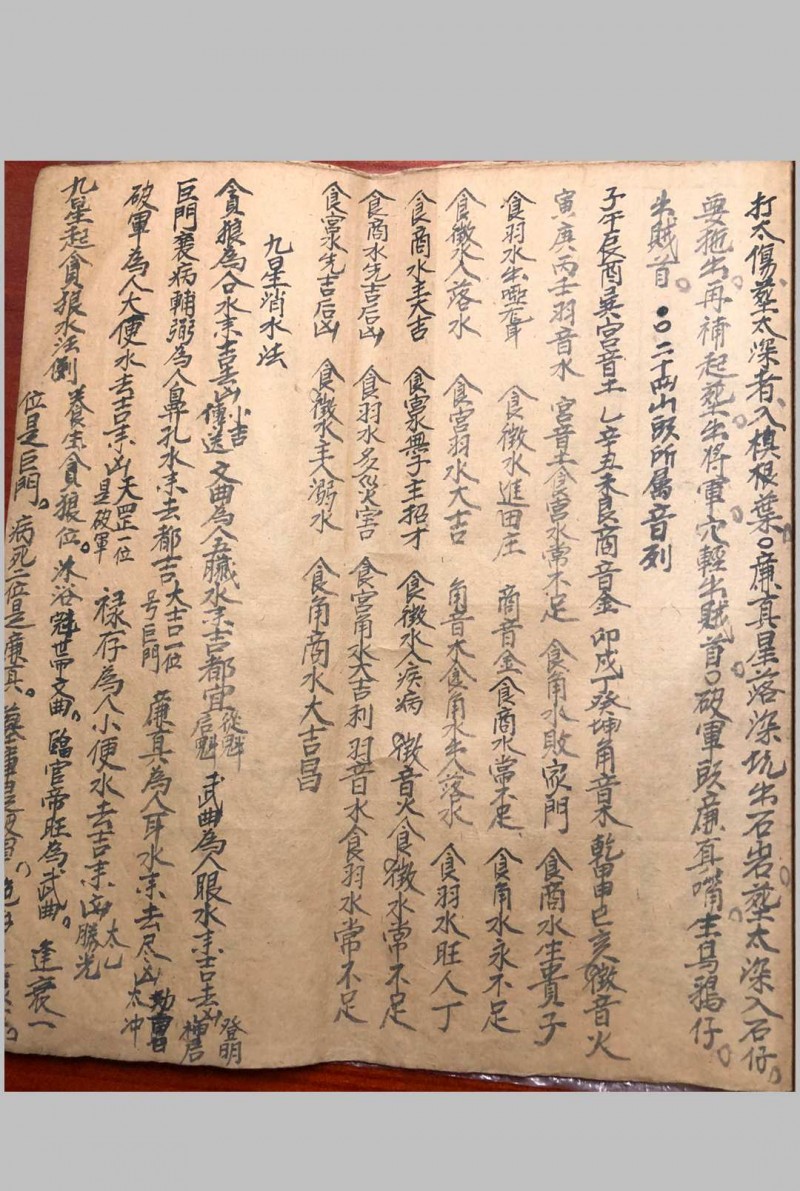 打太傷塟太深者入横根葉。廉真星落深坑出石岩。塟太深入石仔。
要拖出。再補起塟出将軍穴輕出賊首。破軍頭廉真嘴生烏鴉仔。
出賊首。二十四山頭所属音列
子午辰酉巽宫音土 乙辛丑未艮商音金 卯戍丁癸坤角音木 乾甲申巳亥徵音火
寅庚丙壬羽音水 宫音土食宫水常不足 食角水敗家門 食商水生貴子
食羽水出啞耳 食徵水進田庄 商音金食商水常不足 食角水永不足
食徵水人落水 食宫羽水大吉 角音木食角水出人落水 食羽水旺人丁
食商水主大吉 食宫水主招才 食徵水人疾病 徵音火食徵水常不足
食商水先吉后凶 食羽水多災害 食宫角水大吉利 羽音水食羽水常不足
食宫水先吉后凶 食徵水主人溺水 食角商水大吉昌
九星消水法
貪狼為合水来吉去凶小吉傳送 文曲為人五臟水来吉都宜從魁后魁 武曲為人眼水来吉去凶登明神后
巨門衰病輔弼為人鼻孔水来去都吉大吉一位号巨門 廉真為人耳水来去尽凶太冲
破軍為人大便水去吉来凶天罡一位是破軍 禄存為人小便水去吉来凶太乙勝光
九星起貪狼水法例 养生貪狼位。沐浴冠世帶文曲。臨官帝旺為武曲。逢衰一
位是巨門。病死二位是廉真。墓庫是破軍。